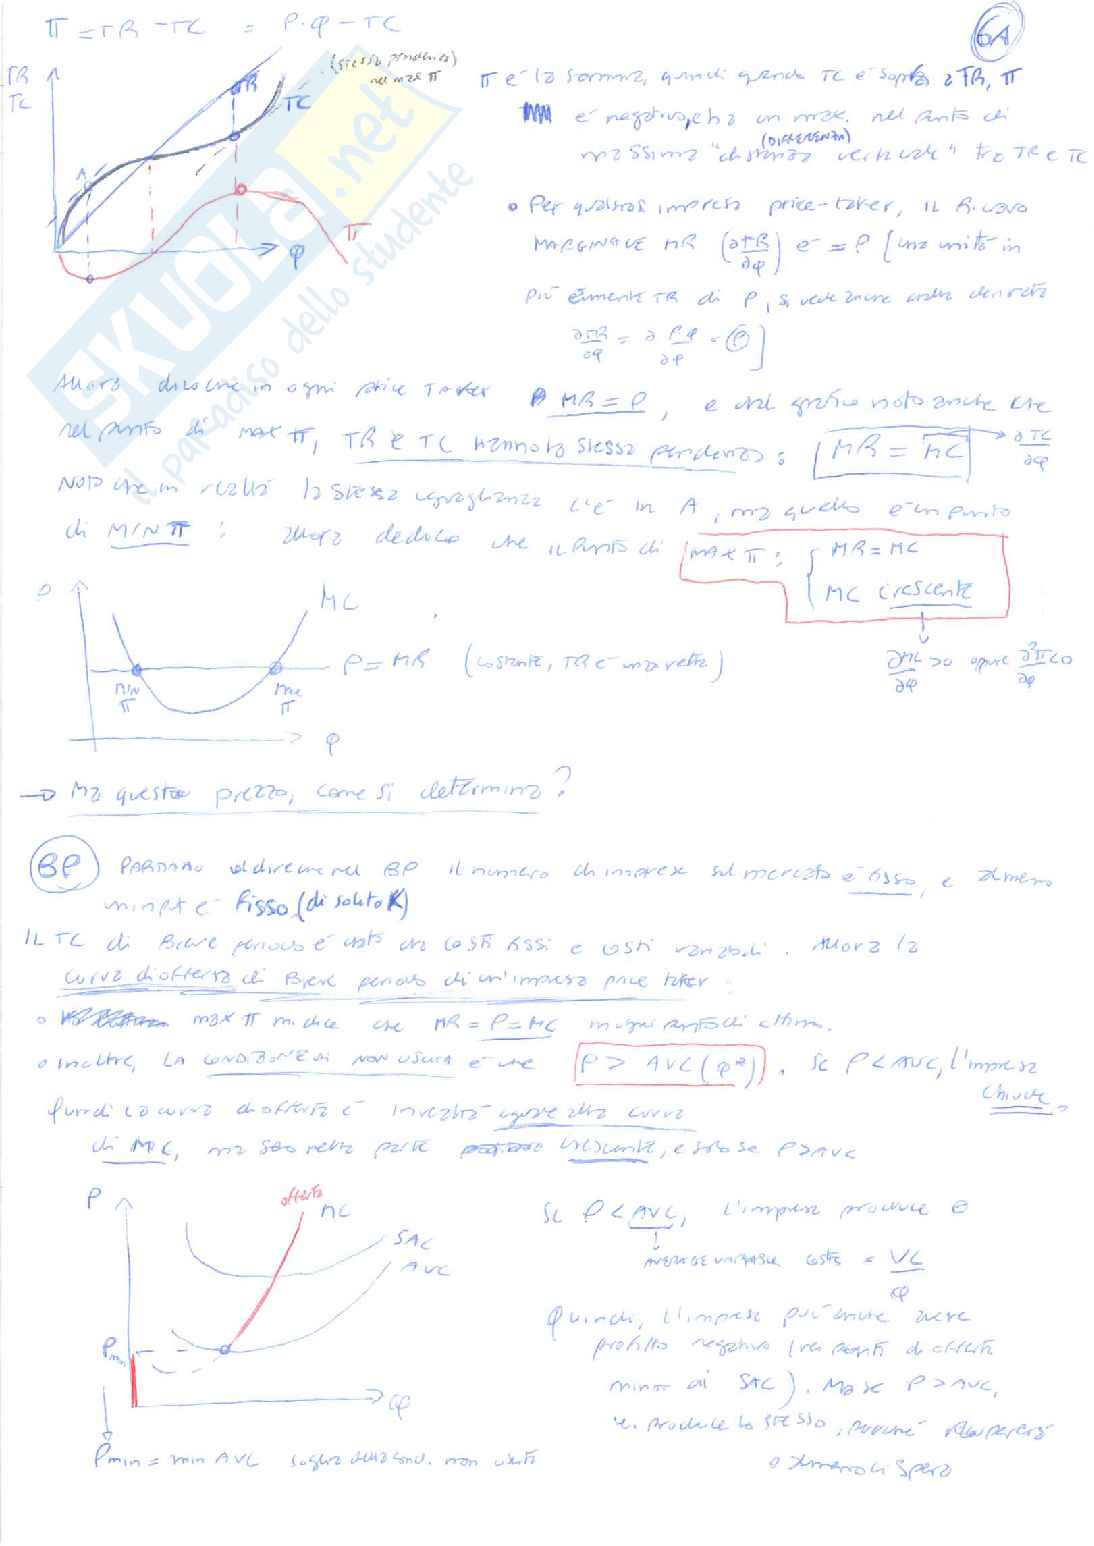 π = TR - TC = P·Q - TC
6A
TR
TC
(stessa pendenza)
nel max π
TR
TC
A
Q
π
π è la somma, quindi quando TC è sopra a TR, π
è negativo, e ha un max. nel punto di
(DIFFERENZA)
massima "distanza verticale" tra TR e TC
• Per qualsiasi impresa price-taker, il Ricavo
MARGINALE MR (∂TR/∂Q) è = P [una unità in
più aumenta TR di P, si vede anche dalla derivata
∂TR/∂Q = ∂PQ/∂Q = P]
Allora dico che in ogni price Taker MR = P, e dal grafico noto anche che
nel punto di max π, TR e TC hanno la stessa pendenza: MR = MC → ∂TC/∂Q
Noto che in realtà la stessa uguaglianza c'è in A, ma quello è un punto
di MIN π: allora deduco che il punto di max π: { MR = MC
MC crescente
∂MC/∂Q > 0 oppure ∂²π/∂Q < 0
MC
P = MR (costante, TR è una retta)
MIN π
max π
Q
→ Ma questo prezzo, come si determina?
BP
PARTIAMO col dire che nel BP il numero di imprese sul mercato è fisso, e almeno
un input è fisso (di solito K)
IL TC di Breve periodo è dato da costi fissi e costi variabili. Allora la
curva di offerta di Breve periodo di un'impresa price taker:
• max π mi dice che MR = P = MC in ogni punto di ottimo.
• inoltre, LA CONDIZIONE DI NON USCITA è che P > AVC(Q*). Se P < AVC, l'impresa
chiude.
Quindi la curva di offerta è in realtà uguale alla curva
di MC, ma solo nella parte crescente, e solo se P > AVC
P
offerta
MC
SAC
AVC
Pmin
Q
Pmin = min AVC soglia della cond. non uscita
Se P < AVC, l'impresa produce 0
AVERAGE VARIABLE COSTS = VC/Q
Quindi, l'impresa può anche avere
profitto negativo (nei punti di offerta
minori di SAC). Ma se P > AVC,
produce lo stesso, perché recupererà
o almeno ci spera